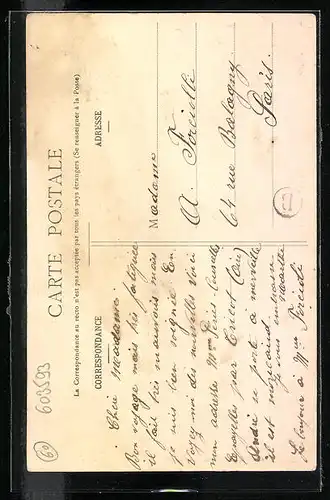 CARTE POSTALE
La Correspondance au recto n'est pas acceptée par tous les pays étrangers (Se renseigner à la Poste)
CORRESPONDANCE
ADRESSE
Chère Madame
Bon voyage mais très fatiguée
il fait très mauvais mais
je suis bien soignée. En
voyez-moi des nouvelles voici
mon adresse Mme
par Tricot (Oise)
André se porte à merveille
il est
Je vous embrasse
Le bonjour à Mme
Madame
A.
64 rue Balagny
Paris.
603593
60